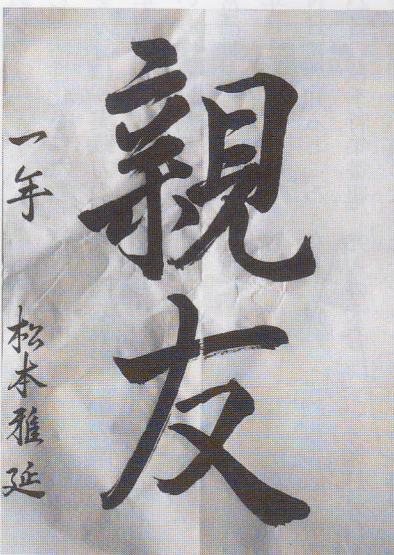 親友
一年 松本雅延